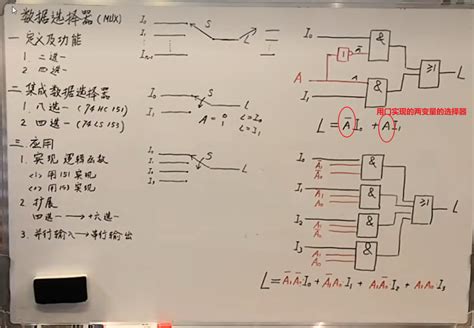 数据选择器(MUX)
一 定义及功能
1. 二选一
2. 四选一
二 集成数据选择器
1. 八选一 (74HC151)
2. 四选一 (74LS153)
三 应用
1. 实现逻辑函数
<1> 用151实现
<2> 用153实现
2. 扩展
四选一→十六选一
3. 并行输入→串行输出
I₀
I₁
Iₙ₋₁
S
L
I₀
I₁
S
L
A = 0 L=I₀
1 L=I₁
I₀
I₁
I₂
I₃
S
L
I₀
&
A
1
Ā
I₁
&
≥1
L
用门实现的两变量的选择器
L = ĀI₀ + AI₁
I₀
Ā₁
Ā₀
&
I₁
Ā₁
A₀
&
I₂
A₁
Ā₀
&
I₃
A₁
A₀
&
≥1
L
L = Ā₁Ā₀I₀ + Ā₁A₀I₁ + A₁Ā₀I₂ + A₁A₀I₃